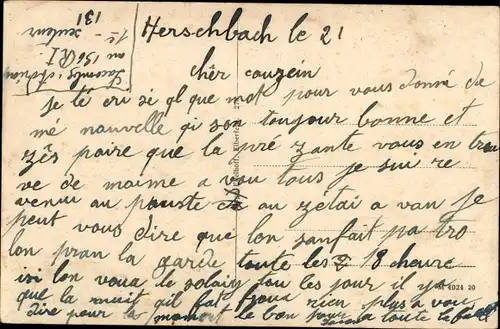 Herschbach le 21
chèr couzein
je té cri sé ql que mot pour vous donné da
mé nauvelle qi son toujour bonne et
zês paire que la pre zante vous en trau
ve de maime a vou tous je suir re
venu au pauste au zetai a van je
peut vous dire que lon sanfait pa tro
lon pran la garde toute les 8 heure
isi lon voua le solaiy tou les jour il y a
que la nuit qil fat rien plus a vou
dire pour la le bon jour a toute la
131
1e
au 156 R I
4024 20